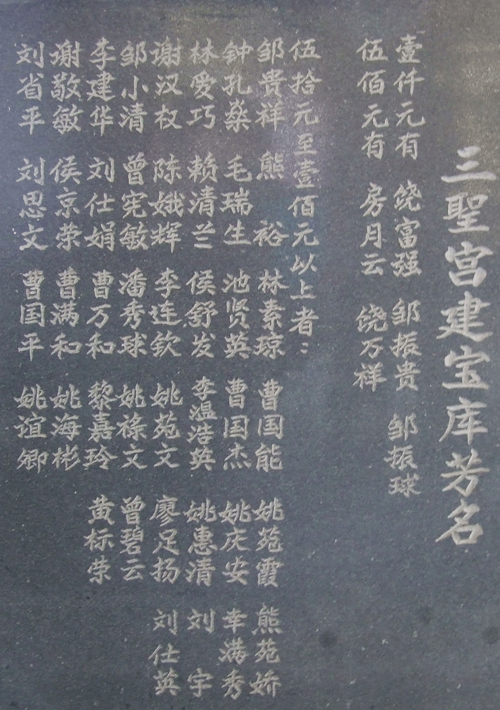 三聖宫建宝库芳名
壹仟元有 饶富强 邹振贵 邹振球
伍佰元有 房月云 饶万祥
伍拾元至壹佰元以上者：
邹贵祥 熊裕 林素琼 曹国能 姚苑霞 熊苑娇
钟孔燊 毛瑞生 池贤英 曹国杰 姚庆安 幸满秀
林爱巧 赖清兰 侯舒发 李温浩英 姚惠清 刘宇
谢汉权 陈娥辉 李连钦 姚苑文 廖足扬 刘仕英
邹小清 曾宪敏 潘秀球 姚禄文 曾碧云
李建华 刘仕娟 曹万和 黎嘉玲 黄标荣
谢敬敏 侯京荣 曹满和 姚海彬
刘省平 刘思文 曹国平 姚谊卿